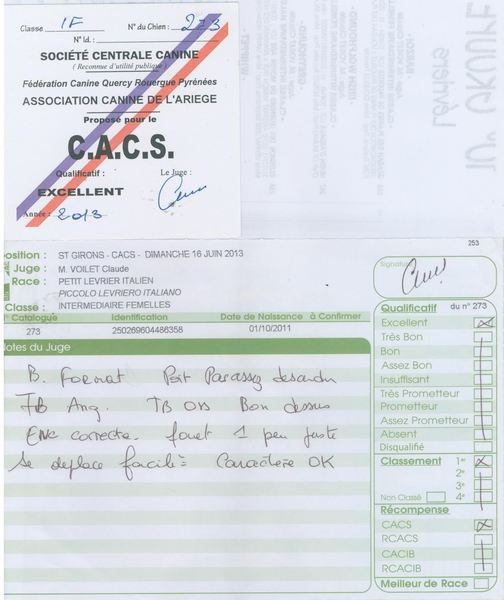 Classe : 1F N° du Chien : 273
N° Id. :
SOCIÉTÉ CENTRALE CANINE
( Reconnue d'utilité publique )
Fédération Canine Quercy Rouergue Pyrénées
ASSOCIATION CANINE DE L'ARIEGE
Proposé pour le
C.A.C.S.
Qualificatif : Le Juge :
EXCELLENT
Année : 2013
10° GROUPE
Lévriers
253
osition : ST GIRONS - CACS - DIMANCHE 16 JUIN 2013
Juge : M. VOILET Claude
Race : PETIT LEVRIER ITALIEN
PICCOLO LEVRIERO ITALIANO
Classe : INTERMEDIAIRE FEMELLES
N° Catalogue Identification Date de Naissance à Confirmer
273 250269604486358 01/10/2011
Notes du Juge
B. Format Poit Parassez descendu
TB Ang. TB os Bon dessus
Enc correcte. fouet 1 peu juste
Se deplace facilt Caractère OK
Signature
Qualificatif du n° 273
Excellent
Très Bon
Bon
Assez Bon
Insuffisant
Très Prometteur
Prometteur
Assez Prometteur
Absent
Disqualifié
Classement 1er
2e
3e
Non Classé 4e
Récompense
CACS
RCACS
CACIB
RCACIB
Meilleur de Race